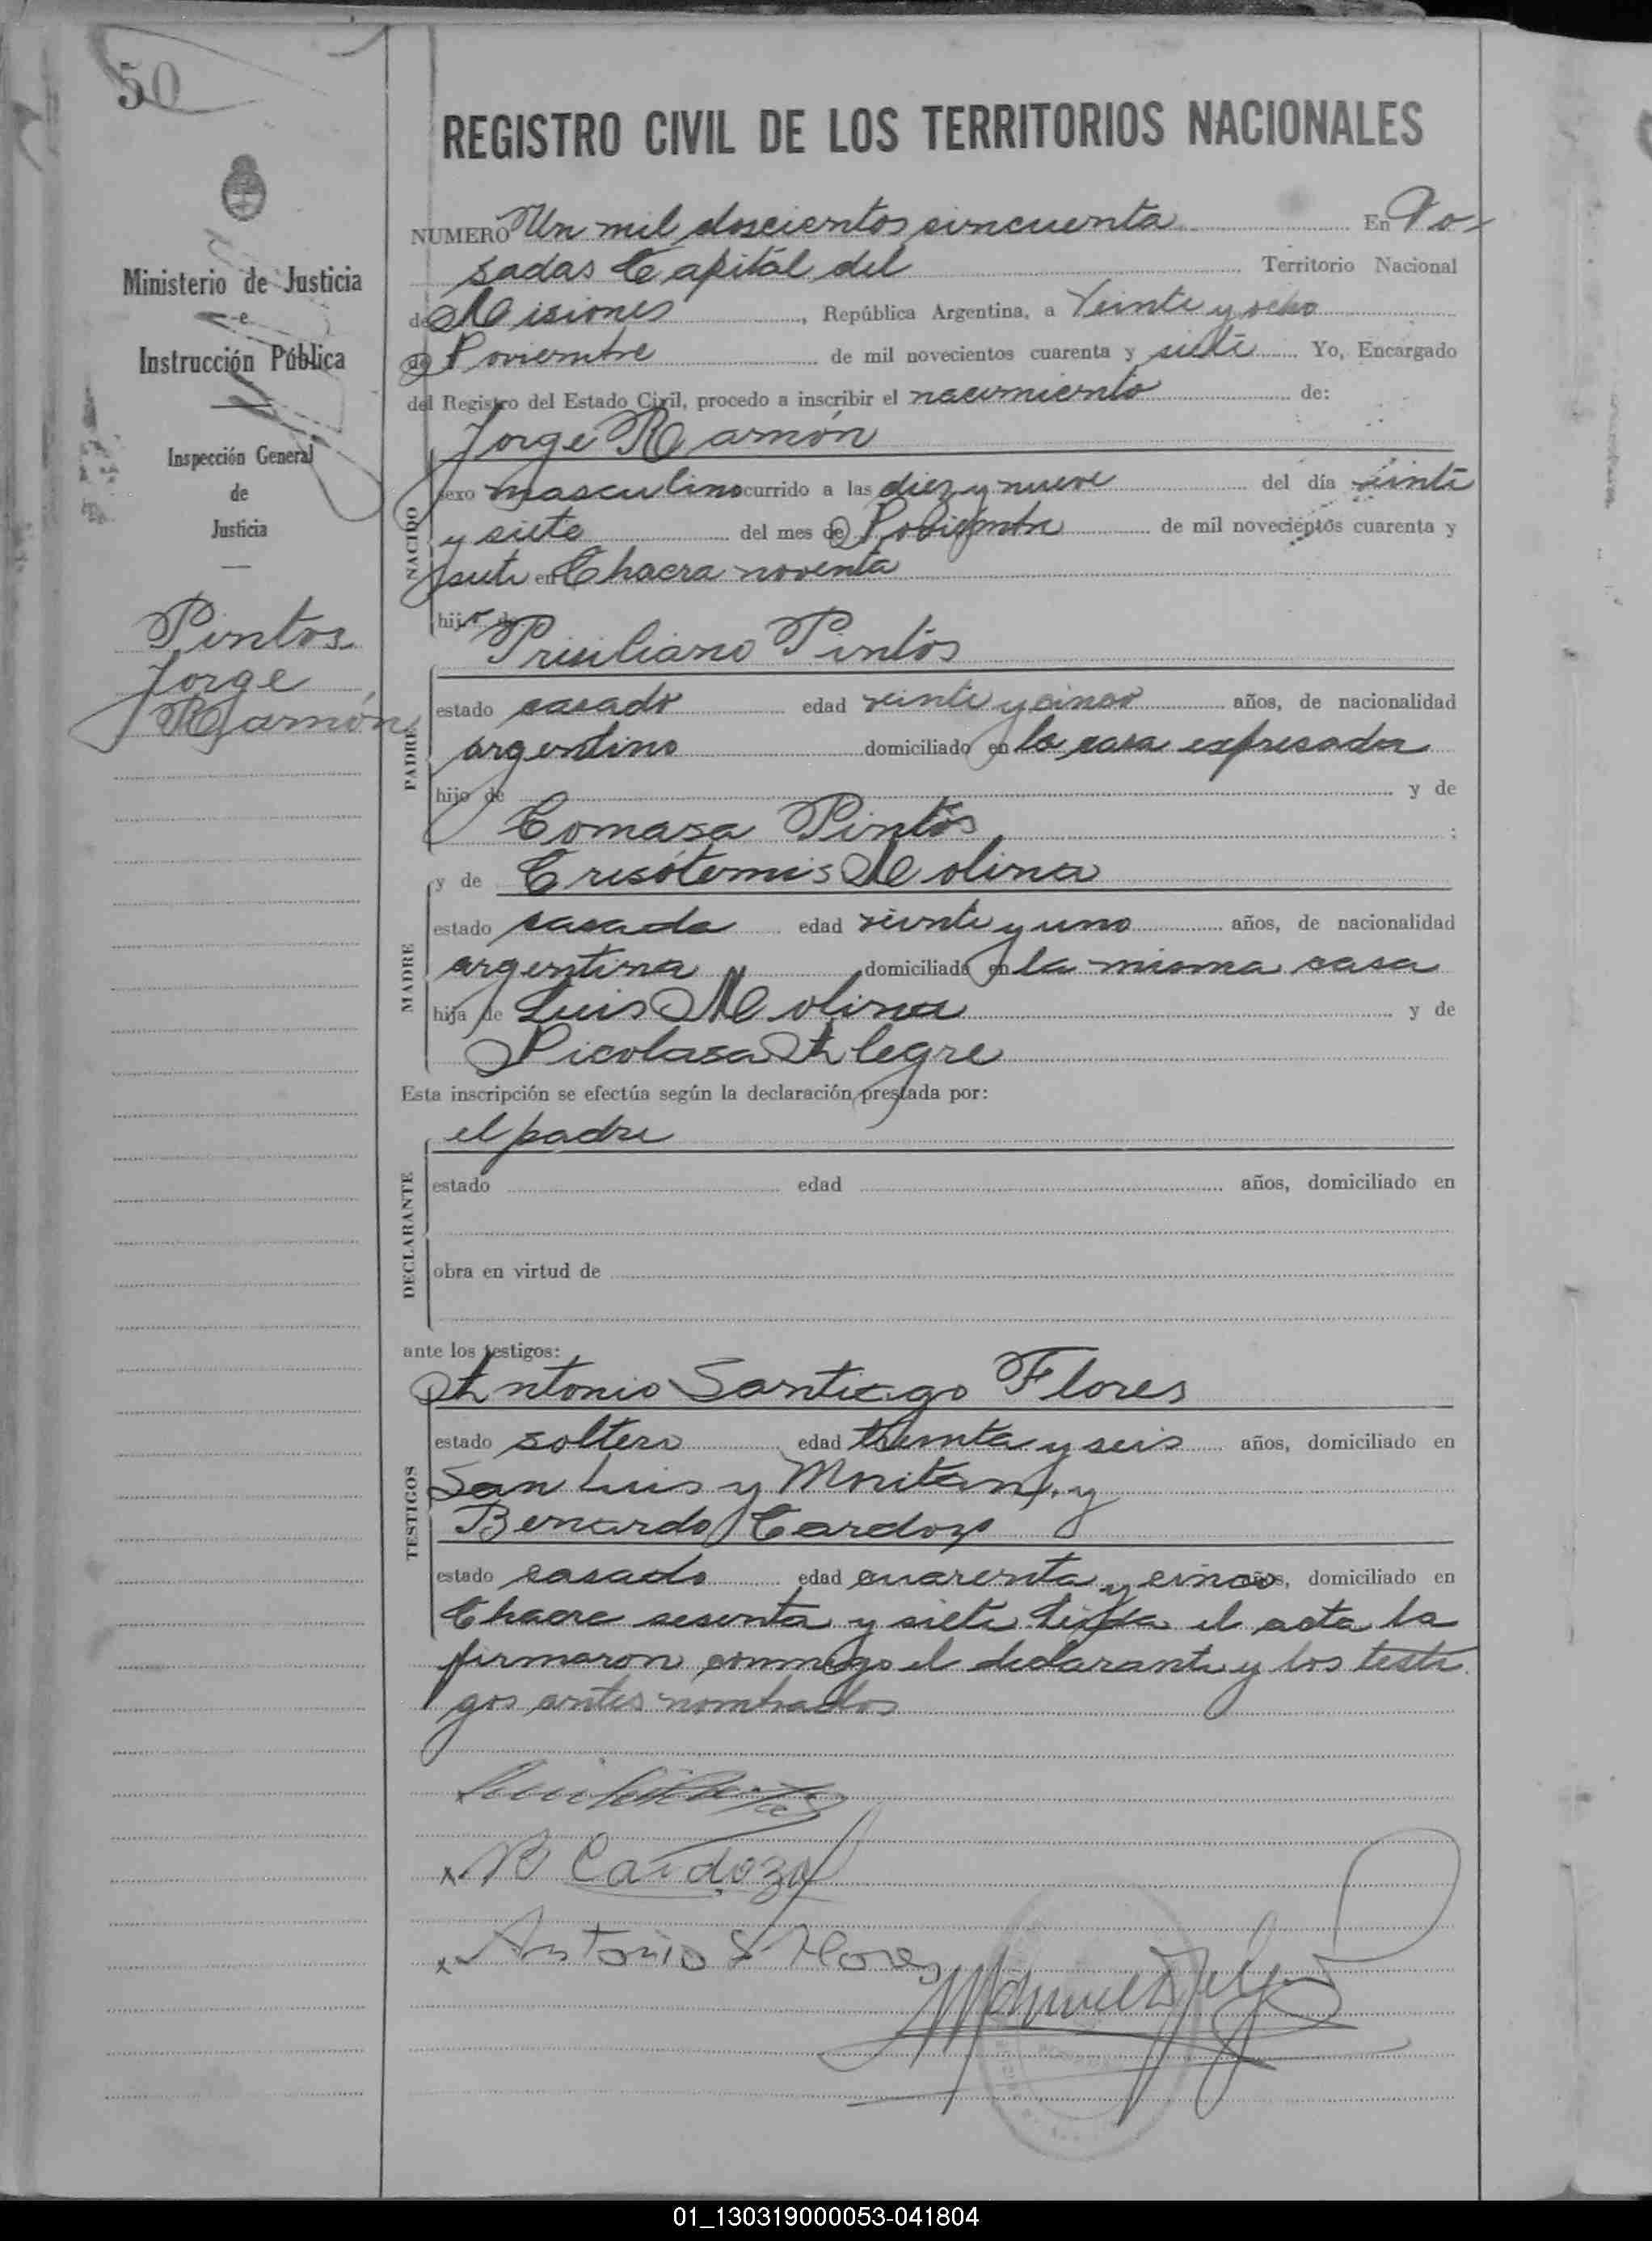 50
REGISTRO CIVIL DE LOS TERRITORIOS NACIONALES
NUMERO Un mil doscientos cincuenta En Po-
sadas Capital del Territorio Nacional
de Misiones, República Argentina, a Veinte y ocho
de Noviembre de mil novecientos cuarenta y siete Yo, Encargado
del Registro del Estado Civil, procedo a inscribir el nacimiento de:
Jorge Ramón
sexo masculino ocurrido a las diez y nueve del día veinte
y siete del mes de Noviembre de mil novecientos cuarenta y
siete en Chacra noventa
hijo de
Prisiliano Pintos
estado casado edad veinte y cinco años, de nacionalidad
argentino domiciliado en la casa expresada
hijo de y de
Tomasa Pintos ;
y de Crisótemis Molina
estado casada edad veinte y uno años, de nacionalidad
argentina domiciliada en la misma casa
hija de Luis Molina y de
Nicolasa Alegre
Esta inscripción se efectúa según la declaración prestada por:
el padre
estado edad años, domiciliado en
obra en virtud de
ante los testigos:
Antonio Santiago Flores
estado soltero edad treinta y seis años, domiciliado en
San Luis y y
Bernardo Cardozo
estado casado edad cuarenta y cinco años, domiciliado en
Chacra sesenta y siete Leída el acta la
firmaron conmigo el declarante y los testi
gos antes nombrados
B Cardozo
Antonio S Flores
Ministerio de Justicia
e
Instrucción Pública
Inspección General
de
Justicia
Pintos
Jorge
Ramón
NACIDO
PADRE
MADRE
DECLARANTE
TESTIGOS
01_130319000053-041804